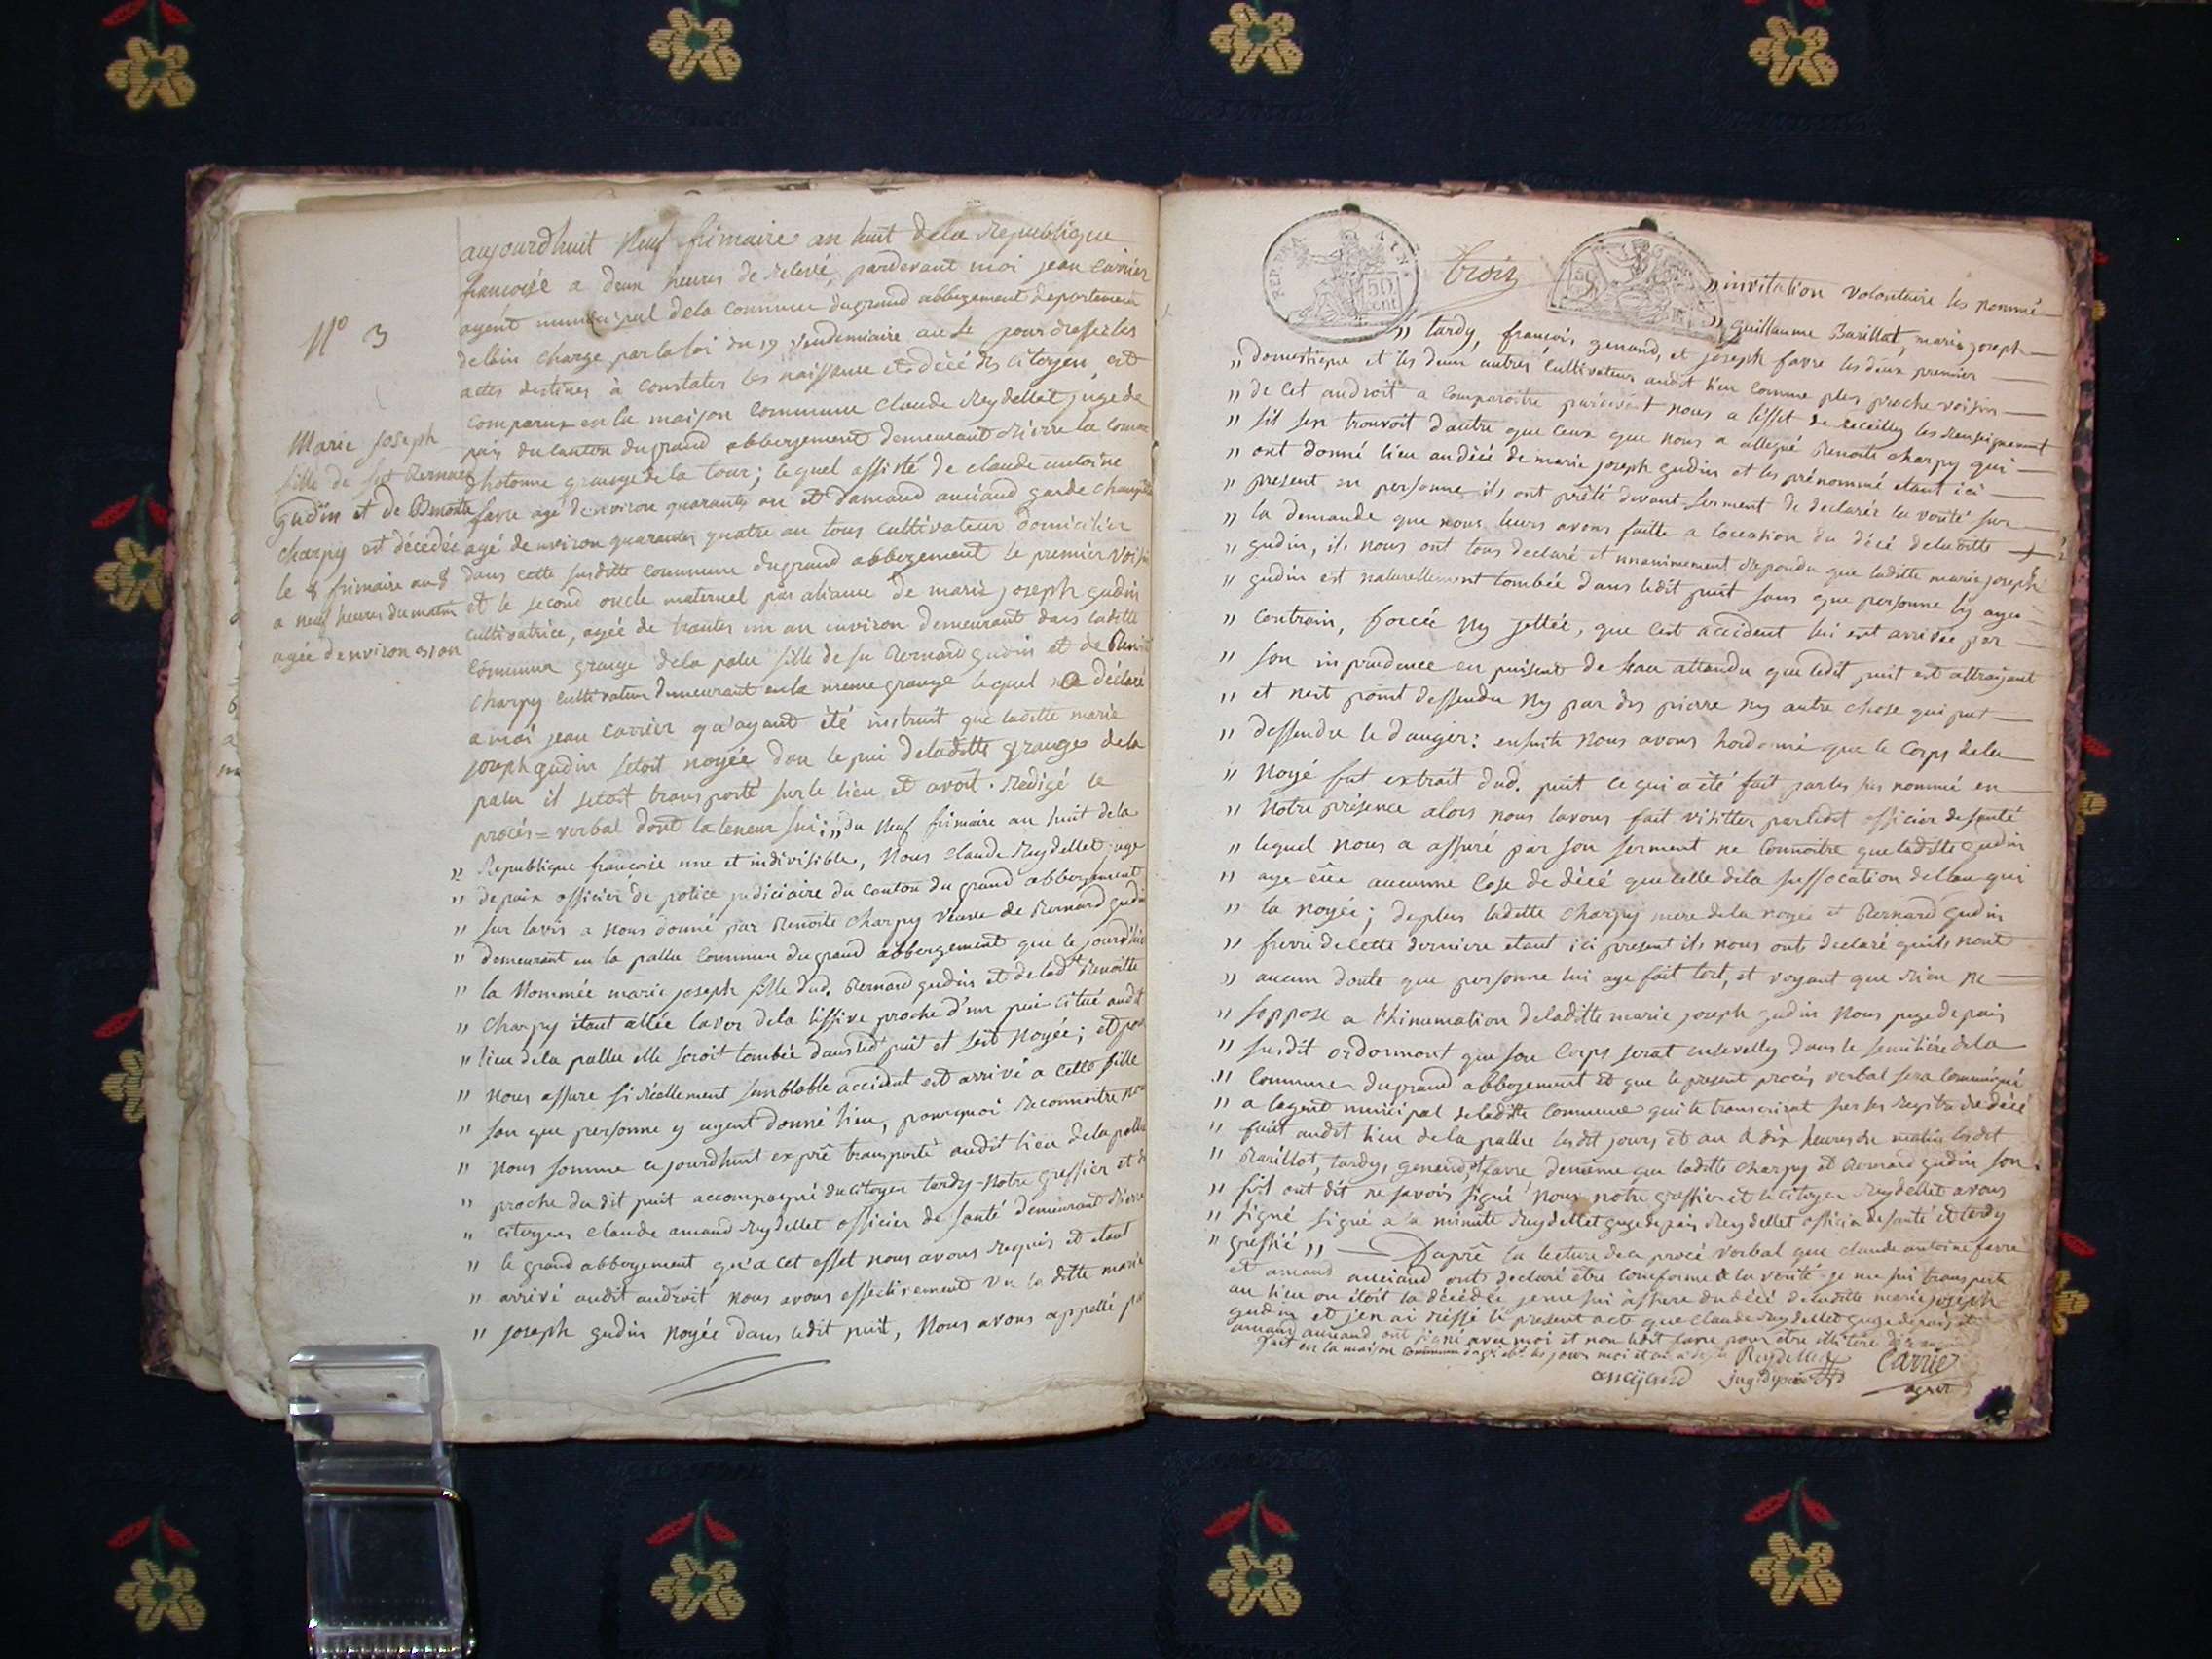 N° 3
Marie joseph
fille de fut Bernard
gudin et de Benoite
charpy est décédée
le 8 frimaire an 8
a neuf heures du matin
agée denviron 31 an
aujourdhuit Neuf frimaire an huit dela Republique
francoise a deux heures de relevé, pardevant moi jean Carrier
agent municipal dela Commune du grand abbergement departement
delain charge par la loi du 19 vendemiaire an 4 pour dresser les
actes destinés à constater les naissance et décé des citoyen, est
comparux en la maison commune claude Reydellet juge de
paix du canton du grand abbergement demeurant rierre la comune
hotonne grange de la tour; lequel assisté de claude antoine
favre agé denviron quarante an et damand anciand garde champêtre
agé de environ quarantes quatre an tous cultivateur domicilier
dans cette susditte commune du grand abbergement le premier voisin
et le second oncle maternel par aliance de marie joseph gudin
cultivatrice, agée de trantes un an environ demeurant dans laditte
commune grange dela palu fille de fu Bernard gudin et de Benoite
charpy cultivateur demeurant en la meme grange lequel a déclaré
a moi jean carrier qu'ayant été instruit que laditte marie
joseph gudin setoit noyée dan le pui deladitte grange dela
palu il setoit transporté sur le lieu et avoit redigé le
procés=verbal dont la teneur sui; „ du Neuf frimaire an huit dela
„ Republique francoise une et indivisible, Nous claude Reydellet juge
„ depaix officier de police judiciaire du canton du grand abbergement
„ sur lavis a nous donné par Benoite charpy veuve de Bernard gudin
„ demeurant en la pallu commune du grand abbergement que le jourdhier
„ la Nommée marie joseph fille dud. Bernard gudin et delad.te Benoitte
„ charpy étant allée laver dela lissive proche d'un pui citué audit
„ lieu dela pallu elle seroit tombée dans led.t puit et sest Noyée; et pour
„ nous assure si réellement semblable accident est arrivé a cette fille
„ san que personne y ayent donné lieu, pourquoi reconnoitre nous
„ nous somme ajourdhuit exprê transporté audit lieu dela pallu
„ proche du dit puit accompagné du citoyen tardy notre greffier et du
„ citoyen claude amand Reydellet officier de santé demeurant rierre
„ le grand abbergement qu'a cet effet nous avons requis et etant
„ arrivé audit androit nous avons effectivement vu la ditte marie
„ joseph gudin noyée dans ledit puit, Nous avons appellé par
REP. FRA
50 cent
trois
50
„ invitation volontaire les nommé
„ guillaume Barillot, marie joseph
„ tardy, françois genand, et joseph favre les deux premier
„ domestique et les deux autres cultivateur audit lieu comme plus proche voisin
„ de cet androit a comparoitre pardevant nous a leffet de receuilly les renseignement
„ sil sen trouvoit dautre que ceux que nous a allegué Benoite charpy qui
„ ont donné lieu au décé de marie joseph gudin et les prénommé etant ici
„ present en personne ils ont prêté devant serment de declarér la verité sur
„ la demande que nous leurs avons faitte a loccasion du décé deladitte
„ gudin, ils nous ont tous declaré et unanimement repondu que laditte marie joseph
„ gudin est naturellement tombée dans ledit puit sans que personne ly aye
„ contrain, forcée Ny jettée, que cest accident lui est arrivée par
„ son inprudence en puisent de leau attendu que ledit puit est attraijant
„ et nest point deffendu Ny par des pierre ny autre chose qui put
„ deffendre le danger: ensuite Nous avons hordonné que le corps dela
„ Noyé fut extrait dud. puit ce qui a été fait par les sus nommé en
„ Notre présence alors nous lavons fait visitter par ledit officier desanté
„ lequel nous a assuré par son serment ne connoitre que laditte gudin
„ aye eûe aucunne cose de décé que celle dela suffocation deleau qui
„ la noyée; deplus laditte charpy mere dela noyée et Bernard gudin
„ frerre de cette derniere etant ici present ils nous ont declaré quils nont
„ aucun doute que personne lui aye fait tort, et voyant que rien ne
„ soppose a lhinumation deladitte marie joseph gudin Nous juge de paix
„ susdit ordonnont que son corps serat ensevelly dans le semitiére dela
„ commune du grand abbergement et que le present procés verbal sera comuniqué
„ a lagent municipal deladitte commune qui le transcrirat sur les registre de décé
„ fait audit lieu dela pallue lesdit jours et an à dix heures du matin lesdit
„ Barillot, tardy, genand, et favre demême que laditte charpy et Bernard gudin son
„ fils ont dit ne savoir signé Nous notre greffier et le citoyen Reydellet avons
„ signé signé a la minute Reydellet juge depaix Reydellet officier de santé et tardy
„ greffié „ — Daprê la lecture de ce procé verbal que claude antoine favre
et amand anciand onts declaré être comforme à la verité je me sui transporte
au lieu ou étoit la décédée je me sui assure du décé deladitte marie joseph
gudin et jen ai réssé le present acte que claude Reydellet juge depaix et
amand anciand ont signé avec moi et non ledit favre pour etre illitéré
fait en la maison commune les jours moi et an
anciand
Reydellet
juge depaix
Carrier
agent